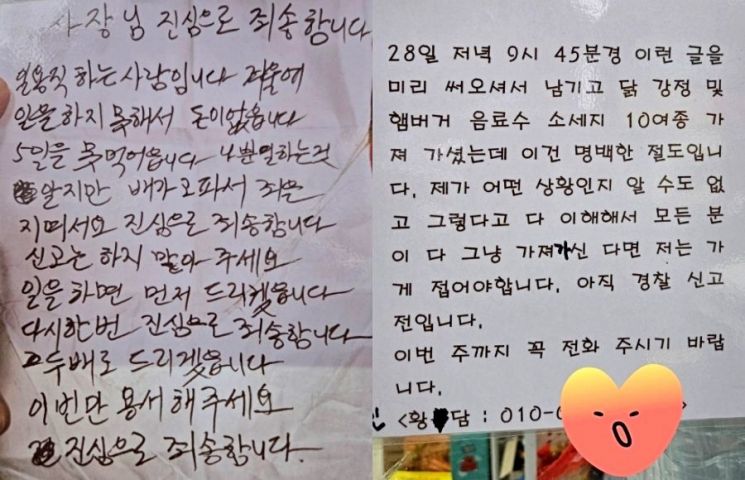 사장님 진심으로 죄송합니다
일용직 하는 사람입니다 겨울에
일을 하지 못해서 돈이 없습니다
5일을 못먹어습니다 나뿐일하는것
알지만 배가 오파서 죄은
지떠서요 진심으로 죄송합니다
신고는 하지 말아 주세요
일을 하면 먼저 드리겠습니다
다시한번 진심으로 죄송합니다
두배로 드리겠습니다
이번만 용서해주세요
진심으로 죄송합니다.
28일 저녁 9시 45분경 이런 글을
미리 써오셔서 남기고 닭 강정 및
햄버거 음료수 소세지 10여종 가
져 가셨는데 이건 명백한 절도입니
다. 제가 어떤 상황인지 알 수도 없
고 그렇다고 다 이해해서 모든 분
이 다 그냥 가져가신 다면 저는 가
게 접어야합니다. 아직 경찰 신고
전입니다.
이번 주까지 꼭 전화 주시기 바랍
니다.
<황 담 : 010-